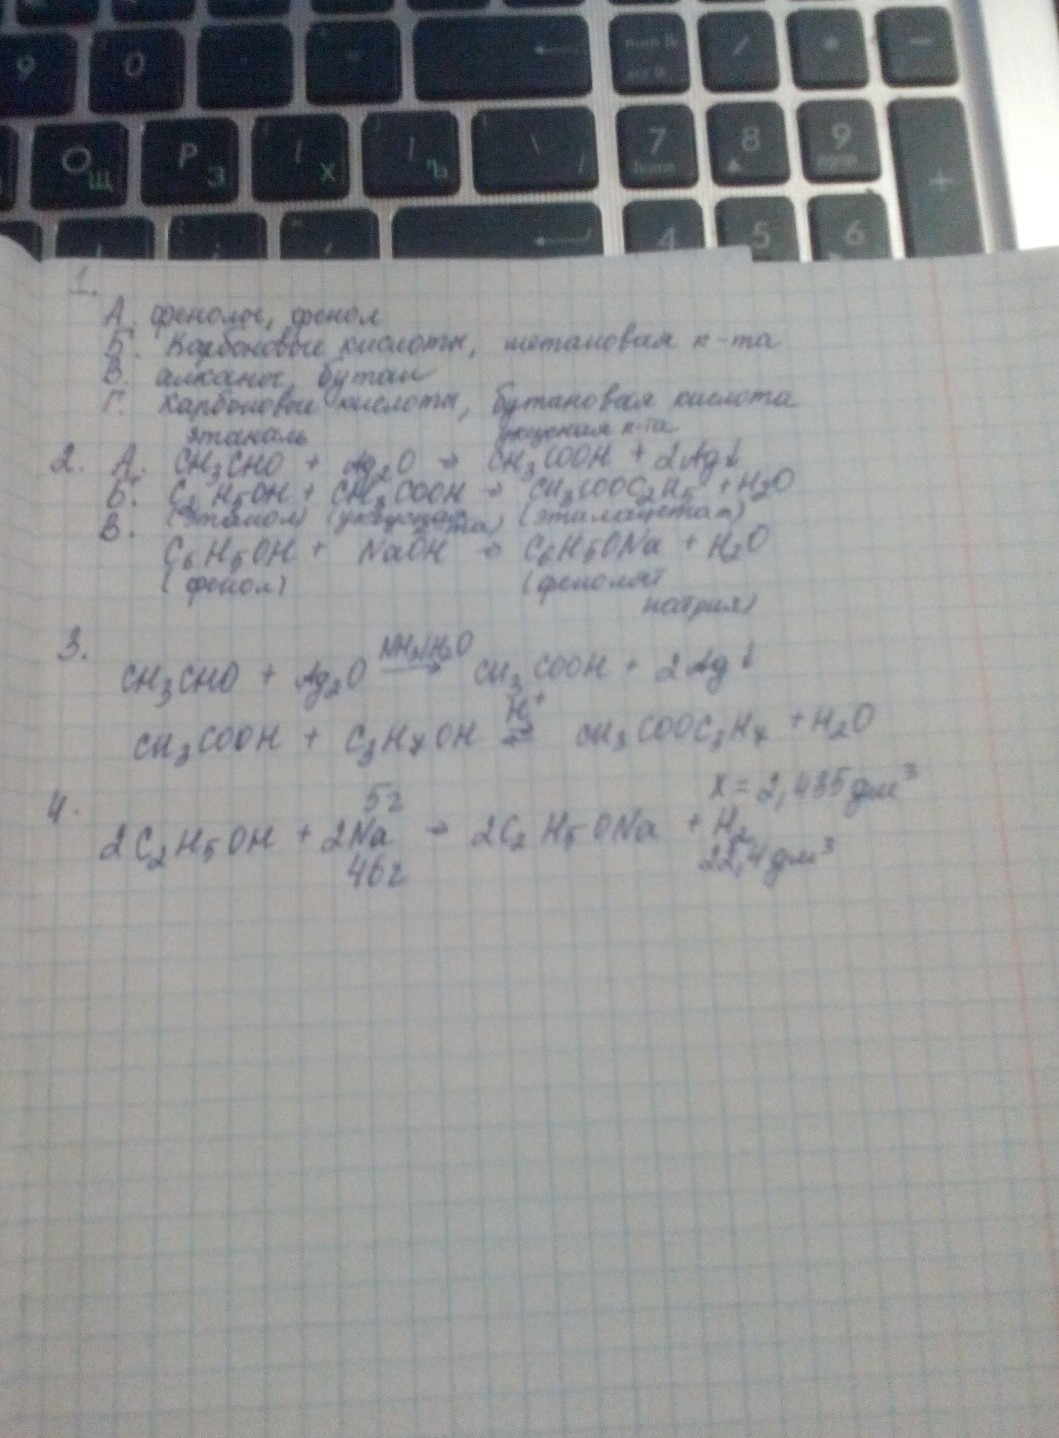 9 0 - = ← num lk / * -
О Щ P З [ Х ] Ъ \ / 7 home 8 9 +
← 4 5 6
1.
А. фенолы, фенол
Б. Карбоновые кислоты, метановая к-та
В. алканы, бутан
Г. Карбоновые кислоты, бутановая кислота
этаналь уксусная к-та
2. А. CH₃CHO + Ag₂O → CH₃COOH + 2Ag↓
Б. C₂H₅OH + CH₃COOH → CH₃COOC₂H₅ + H₂O
(этанол) (уксусная к-та) (этилацетат)
В.
C₆H₅OH + NaOH → C₆H₅ONa + H₂O
(фенол) (фенолят
натрия)
3.
CH₃CHO + Ag₂O → CH₃COOH + 2Ag↓
H⁺
CH₃COOH + C₃H₇OH ⇌ CH₃COOC₃H₇ + H₂O
4. 5г X = 2,435дм³
2C₂H₅OH + 2Na → 2C₂H₅ONa + H₂
46г 22,4дм³